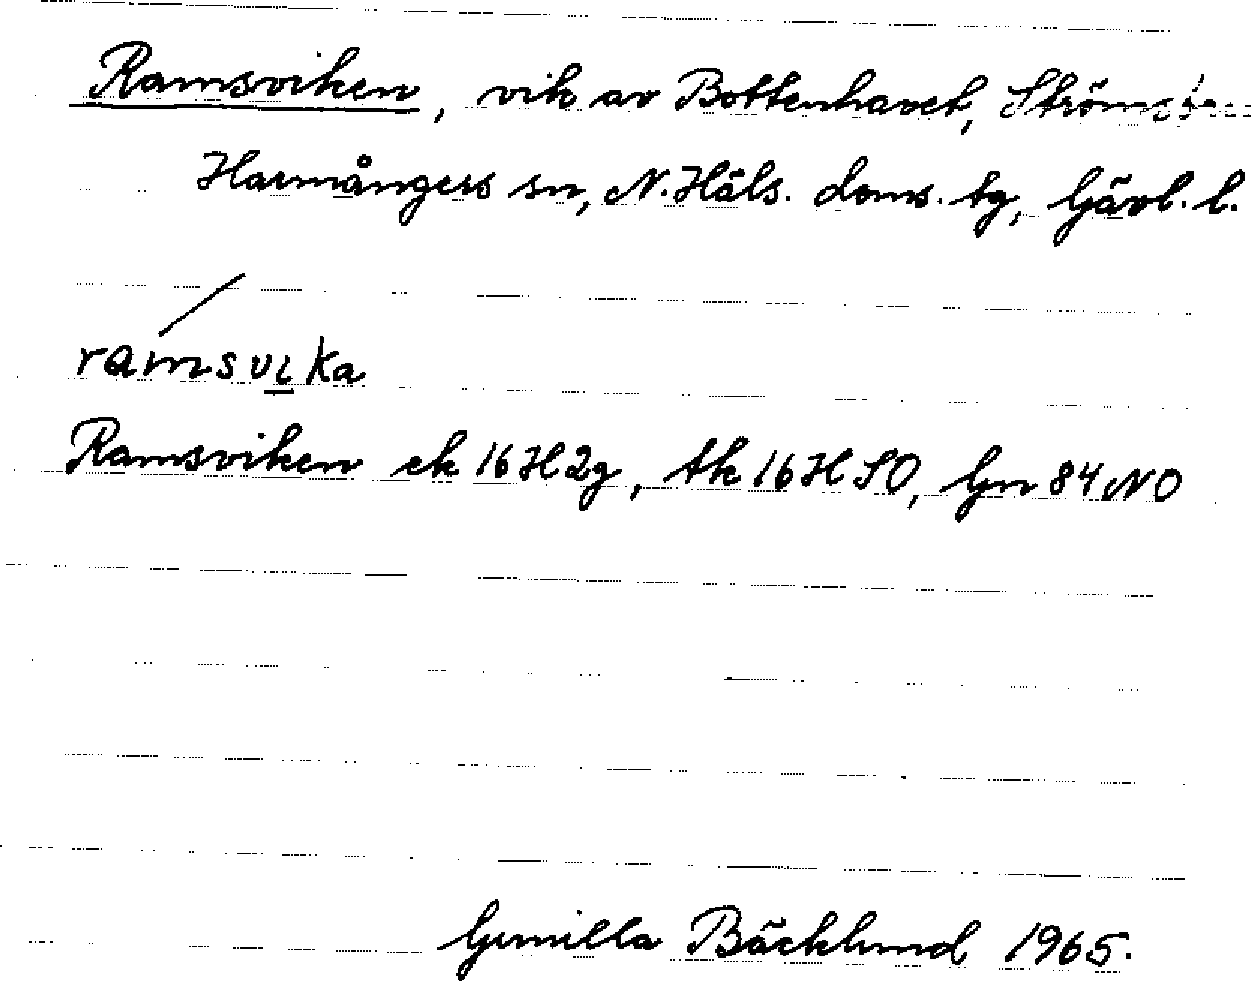 Ramsviken, vik av Bottenhavet,
Harmångers sn, N. Häls. doms. tg, Gävl. l.
ramsvika
Ramsviken ek 16H2g, tk 16H SO, Gn 84 NO
Gunilla Bäcklund 1965.